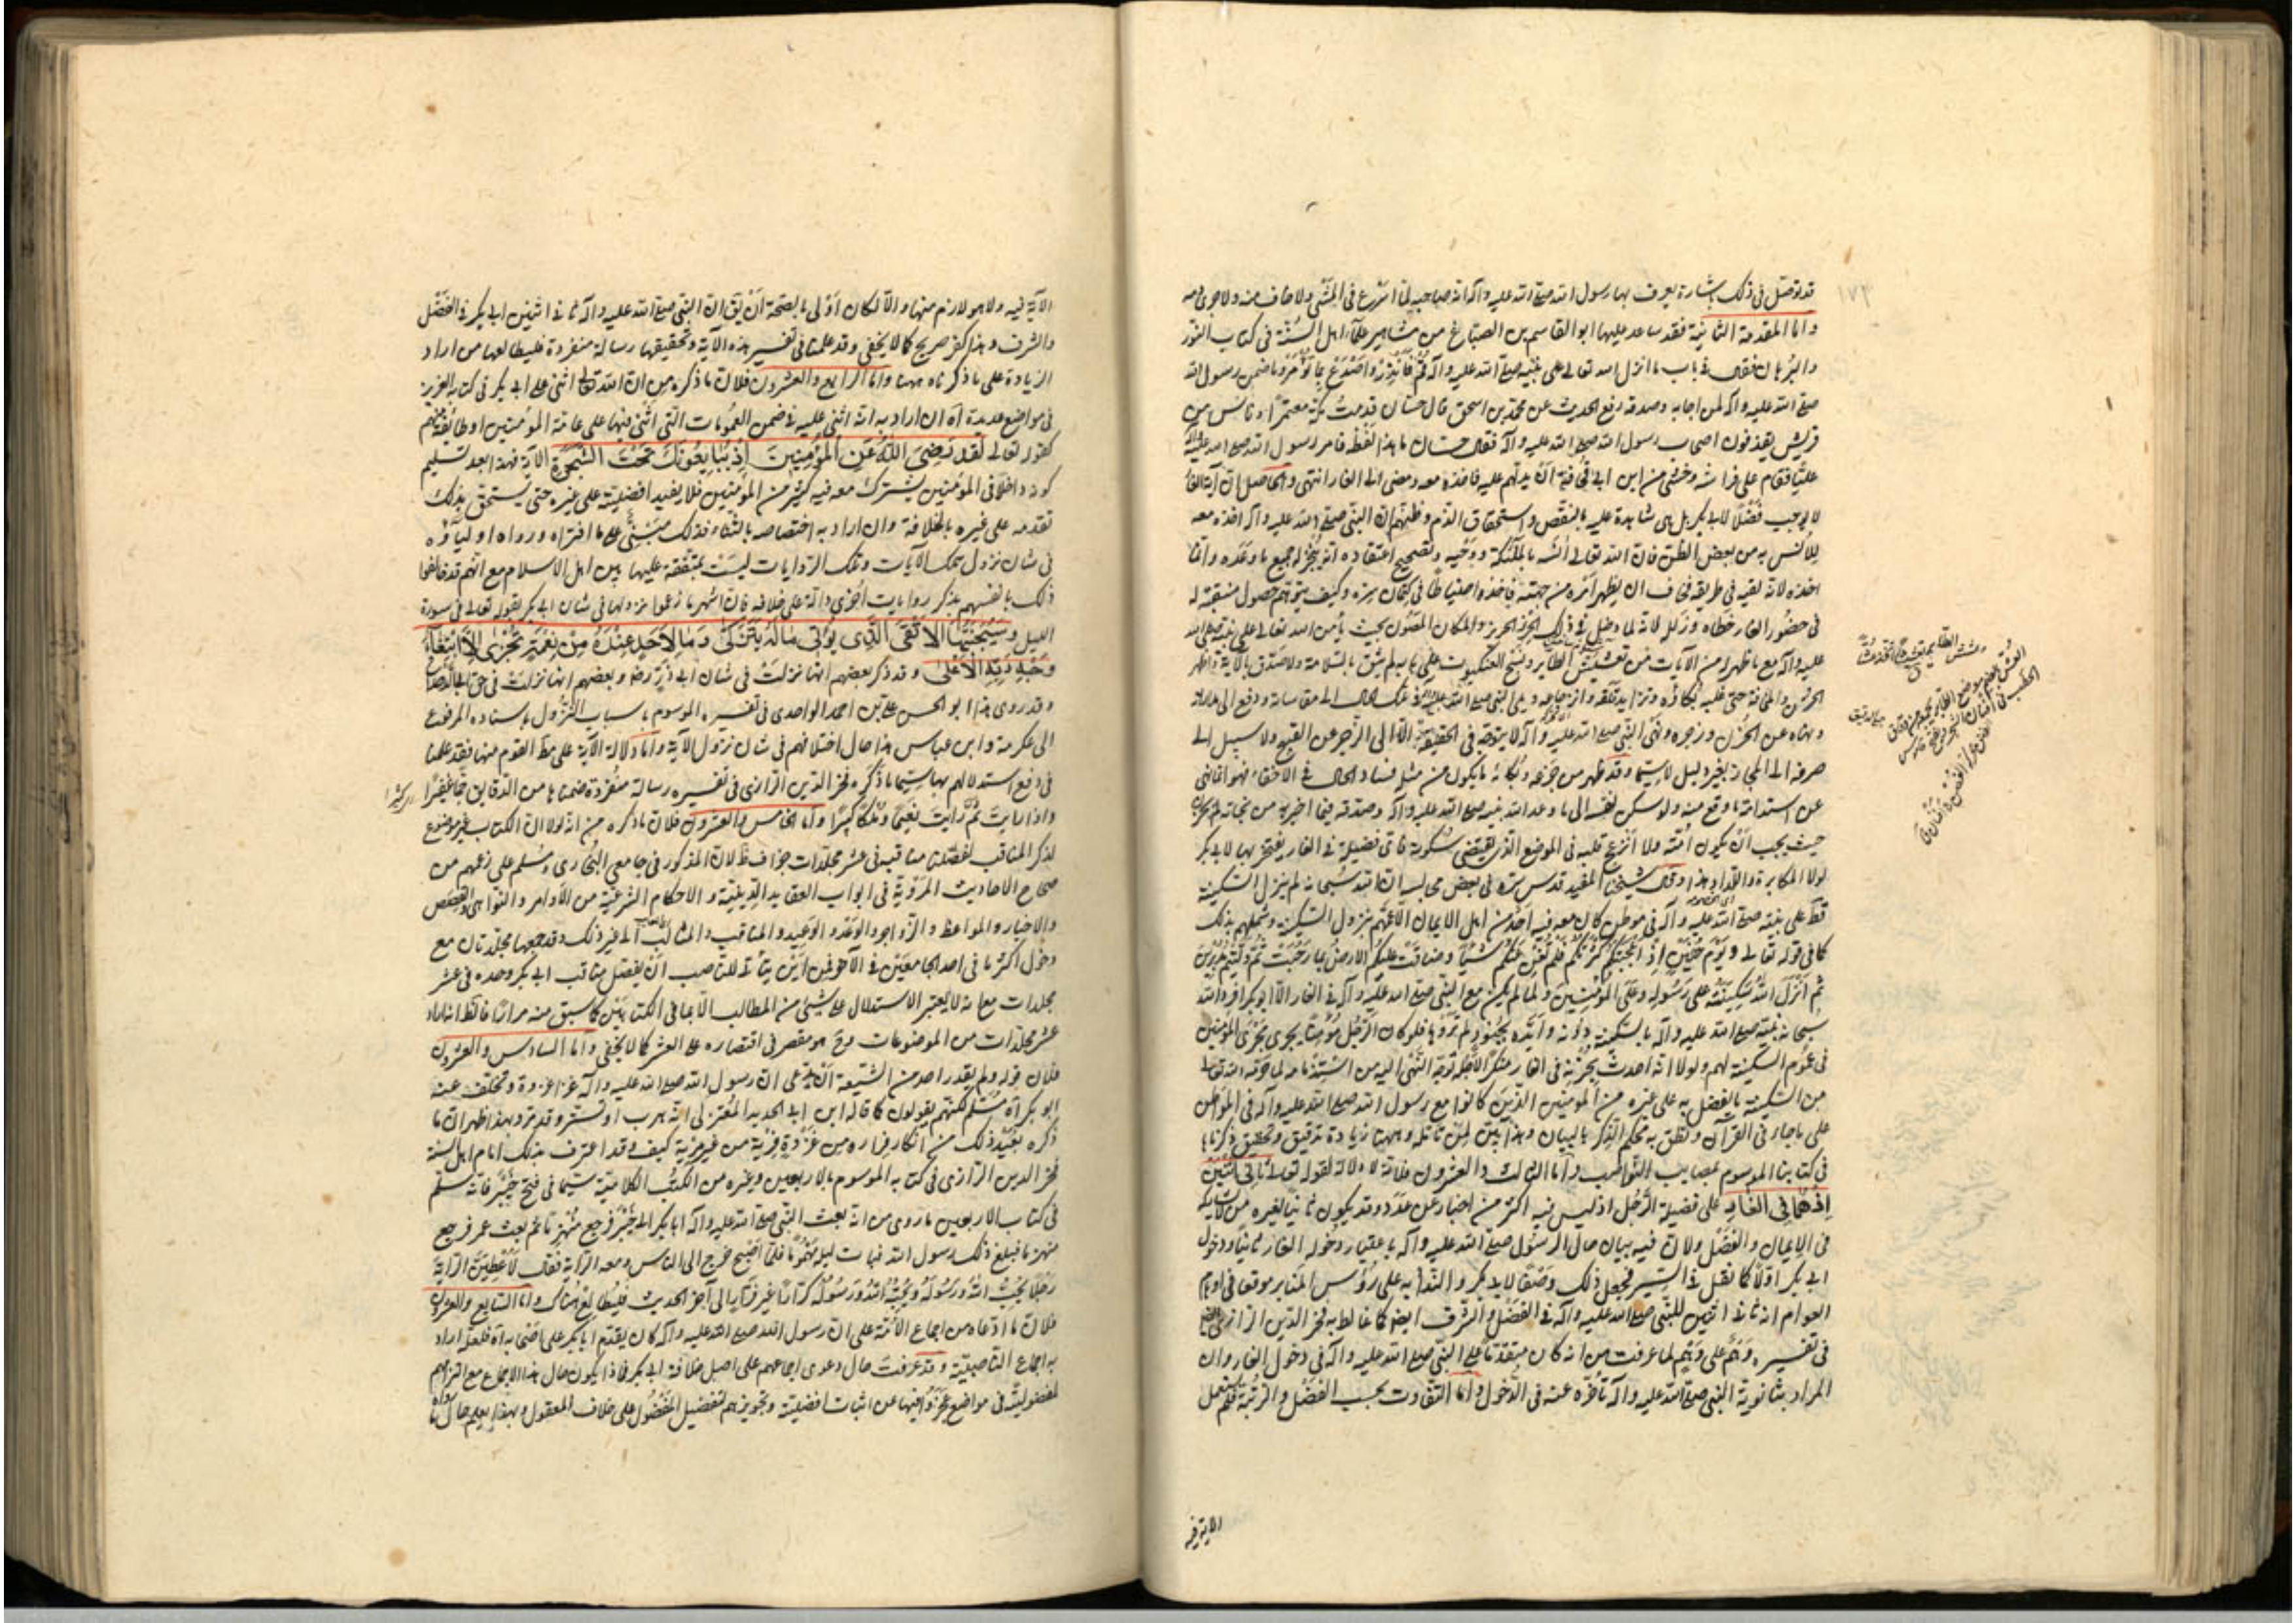 قد توصل في ذلك بشارة يعرف بها رسول الله صلى الله عليه وآله انه صاحبه لما اسرع في المشي ولا خاف منه ولا جرى دمه
واما المقدمة الثانية فقد ساعد عليها ابو القاسم بن الصباغ من مشاهير علماء اهل السنة في كتاب النور
والبرهان فقال في باب ما انزل الله تعالى على نبيه صلى الله عليه وآله قم فانذر واصدع بما تؤمر وما ضمن رسول الله
صلى الله عليه وآله لمن اجابه وصدقه رفع الحديث عن محمد بن اسحق قال حسان قدمت مكة معتمرا وناس من
قريش يقذفون اصحاب رسول الله صلى الله عليه وآله فقال حسان ما هذا لفظه فامر رسول الله صلى الله عليه وآله
عليا فنام على فراشه وخشي من ابن ابي قحافة ان يدلهم عليه فاخذه معه ومضى الى الغار انتهى والحاصل ان آية الغار
لا يوجب فضلا لابي بكر بل هي شاهدة عليه بالنقص واستحقاق الذم وظنهم ان النبي صلى الله عليه وآله اخذه معه
للانس به من بعض الظن فان الله تعالى آنسه بالملئكة ووحيه وتصحيح اعتقاده انه ينجز له جميع ما وعده وانما
اخذه لانه لقيه في طريقه فخاف ان يظهر امره من جهته فاخذه احتياطا في كتمان سره وكيف يتوهم حصول منقبة له
في حضور الغار خطاه وزلل لانه لما دخل في ذلك الحرز الحريز والمكان المصون بحيث يأمن الله تعالى على نبيه صلى الله
عليه وآله مع ما ظهر له من الآيات من تعشيش الطاير ونسج العنكبوت على بابه لم يثق بالسلامة ولا صدق بالآية واظهر
الحزن والمخافة حتى غلبه بكاؤه وتزايد قلقه وانزعاجه وبلي النبي صلى الله عليه وآله في تلك الحال الى مقاساته ودفع الى مداراته
ونهاه عن الحزن وزجره ونهي النبي صلى الله عليه وآله لا يتوجه في الحقيقة الا الى الزجر عن القبيح ولا سبيل الى
صرفه الى المجاز بغير دليل لا سيما وقد ظهر من جزعه وبكائه ما يكون من مثله فساد الحال في الاختفاء فهو انما نهى
عن استدامة ما وقع منه ولو سكن نفسه الى ما وعد الله نبيه صلى الله عليه وآله وصدقه فيما اخبر به من نجاته لم يحزن
حيث يجب ان يكون آمنه ولا انزعج قلبه في الموضع الذي يقتضي سكونه فاي فضيلة في الغار يفتخر بها لابي بكر
لولا المكابرة واللداد هذا وقال شيخنا المفيد قدس سره في بعض مجالسه ان الله سبحانه لم ينزل السكينة
قط على نبيه صلى الله عليه وآله في موطن كان معه فيه احد من اهل الايمان الا عمهم بنزول السكينة وشملهم بذلك
كما في قوله تعالى ويوم حنين اذ اعجبتكم كثرتكم فلم تغن عنكم شيئا وضاقت عليكم الارض بما رحبت ثم وليتم مدبرين
ثم انزل الله سكينته على رسوله وعلى المؤمنين ولما لم يكن مع النبي صلى الله عليه وآله في الغار الا ابو بكر افرد الله
سبحانه نبيه صلى الله عليه وآله بالسكينة دونه وايده بجنود لم تروها فلو كان الرجل مؤمنا يجري مجرى المؤمنين
في عموم السكينة لهم ولولا انه احدث بحزنه في الغار منكرا لاجله توجه النهي اليه من استدامته لما حرمه الله تعالى
من السكينة ما تفضل به على غيره من المؤمنين الذين كانوا مع رسول الله صلى الله عليه وآله في المواطن
على ما جاء في القرآن ونطق به محكم الذكر بالبيان وهذا بين لمن تأمله وههنا زيادة تدقيق وتحقيق ذكرناها
في كتابنا الموسوم بمصايب النواصب واما الثالث والعشرون فلانه لا دلالة لقوله تعالى ثاني اثنين
اذ هما في الغار على فضيلة الرجل اذ ليس فيه اكثر من اخبار عن عدد وقد يكون ثانيا لغيره من لا يشاركه
في الايمان والفضل ولان فيه بيان حال الرسول صلى الله عليه وآله باعتبار دخوله الغار ثانيا ودخول
ابي بكر اولا كما نقل في السير فجعل ذلك وصفا لابي بكر والندا به على رؤس المنابر موقعا في اوهام
العوام انه ثاني اثنين للنبي صلى الله عليه وآله في الفضل والشرف ايضا كما غالط به فخر الدين الرازي ايضا
في تفسيره وهم على وهم لما عرفت من انه كان متقدما على النبي صلى الله عليه وآله في دخول الغار وان
المراد بثانوية النبي صلى الله عليه وآله تأخره عنه في الدخول واما التفاوت بحسب الفضل والرتبة فلم يستعمل
الآية فيه
الآية فيه ولا هو لازم منها والا لكان اولى بالصحة ان يقال ان النبي صلى الله عليه وآله ثاني اثنين ابي بكر في الفضل
والشرف وهذا كفر صريح كما لا يخفى وقد علمنا في تفسير هذه الآية وتحقيقها رسالة منفردة فليطالعها من اراد
الزيادة على ما ذكرناه ههنا واما الرابع والعشرون فلان ما ذكره من ان الله تعالى اثنى على ابي بكر في كتابه العزيز
في مواضع عديدة آه ان اراد به انه اثنى عليه في ضمن العمومات التي اثنى فيها على عامة المؤمنين او طائفة منهم
كقوله تعالى لقد رضي الله عن المؤمنين اذ يبايعونك تحت الشجرة الآية فهذا بعد تسليم
كونه داخلا في المؤمنين يشترك معه فيه كثير من المؤمنين فلا يفيد افضليته على غيره حتى يستحق بذلك
تقدمه على غيره بالخلافة وان اراد به اختصاصه بالثناء فذلك مبتني على ما افتراه ورواه اولياؤه
في شان نزول تلك الآيات وتلك الروايات ليست بمتفقة عليها بين اهل الاسلام مع انهم قد خالفوا
ذلك بانفسهم بذكر روايات اخرى دالة على خلافه فان اشهر ما زعموا نزولها في شان ابي بكر لقوله تعالى في سورة
الليل وسيجنبها الاتقى الذي يؤتي ماله يتزكى وما لاحد عنده من نعمة تجزى الا ابتغاء
وجه ربه الاعلى وقد ذكر بعضهم انها نزلت في شان ابي ذر رض وبعضهم انها نزلت في حق ابي الدحداح
وقد روى هذا ابو الحسن علي بن احمد الواحدي في تفسيره الموسوم باسباب النزول باسناده المرفوع
الى عكرمة وابن عباس هذا حال اختلافهم في شان نزول الآية واما دلالة الآية على مط القوم منها فقد علمنا
في دفع استدلالهم بها سيما ما ذكره فخر الدين الرازي في تفسيره رسالة منفردة ضمناها من الدقايق جما غفيرا
واذا رايت ثم رايت نعيما وملكا كبيرا واما الخامس والعشرون فلان ما ذكره من انه لولا ان الكتاب غير موضوع
لذكر المناقب لفصلنا مناقبه في عشر مجلدات جزاف ظ لان المذكور في جامعي البخاري ومسلم على زعمهم من
صحاح الاحاديث المروية في ابواب العقايد الدينية والاحكام الشرعية من الاوامر والنواهي والقصص
والاخبار والمواعظ والزواجر والوعد والوعيد والمناقب والمثالب الى غير ذلك وقد جمعها مجلدتان مع
دخول اكثر ما في احد الجامعين في الآخر فمن اين يتأتى للناصب ان يفصل مناقب ابي بكر وحده في عشر
مجلدات مع انه لا يعتبر الاستدلال على شيء من المطالب الا بما في الكتابين كما سبق منه مرارا فالظ انه اراد
عشر مجلدات من الموضوعات وح هو مقصر في اقتصاره على العشر كما لا يخفى واما السادس والعشرون
فلان قوله ولم يقدر احد من الشيعة ان يدعي ان رسول الله صلى الله عليه وآله غزا غزوة وتخلف عنه
ابو بكر آه مسلم لكنهم يقولون كما قاله ابن ابي الحديد المعتزلي انه هرب او تستر وقد مر وبهذا ظهر ان ما
ذكره بعيد ذلك من انكار فراره من غزوة فرية من غير مرية كيف وقد اعترف بذلك امام اهل السنة
فخر الدين الرازي في كتابه الموسوم بالاربعين وغيره من الكتب الكلامية سيما في فتح خيبر فانه سلم
في كتاب الاربعين ما روي من انه بعث النبي صلى الله عليه وآله ابا بكر الى خيبر فرجع منهزما ثم بعث عمر فرجع
منهزما فبلغ ذلك رسول الله فبات ليله مهموما فلما اصبح خرج الى الناس ومعه الراية فقال لاعطين الراية
رجلا يحب الله ورسوله ويحبه الله ورسوله كرارا غير فرار الى آخر الحديث فليطالع هناك واما السابع والعشرون
فلان ما ادعاه من اجماع الائمة على ان رسول الله صلى الله عليه وآله كان يقدم ابا بكر على اصحابه آه فلعله اراد
به اجماع الناصبية وقد عرفت حال دعوى اجماعهم على اصل خلافة ابي بكر فما ذا يكون حال هذا الاجماع مع التزامهم
لمفضوليته في مواضع عجزوا فيها عن اثبات افضليته وتجويزهم تفضيل المفضول على خلاف المعقول وبهذا يعلم حال